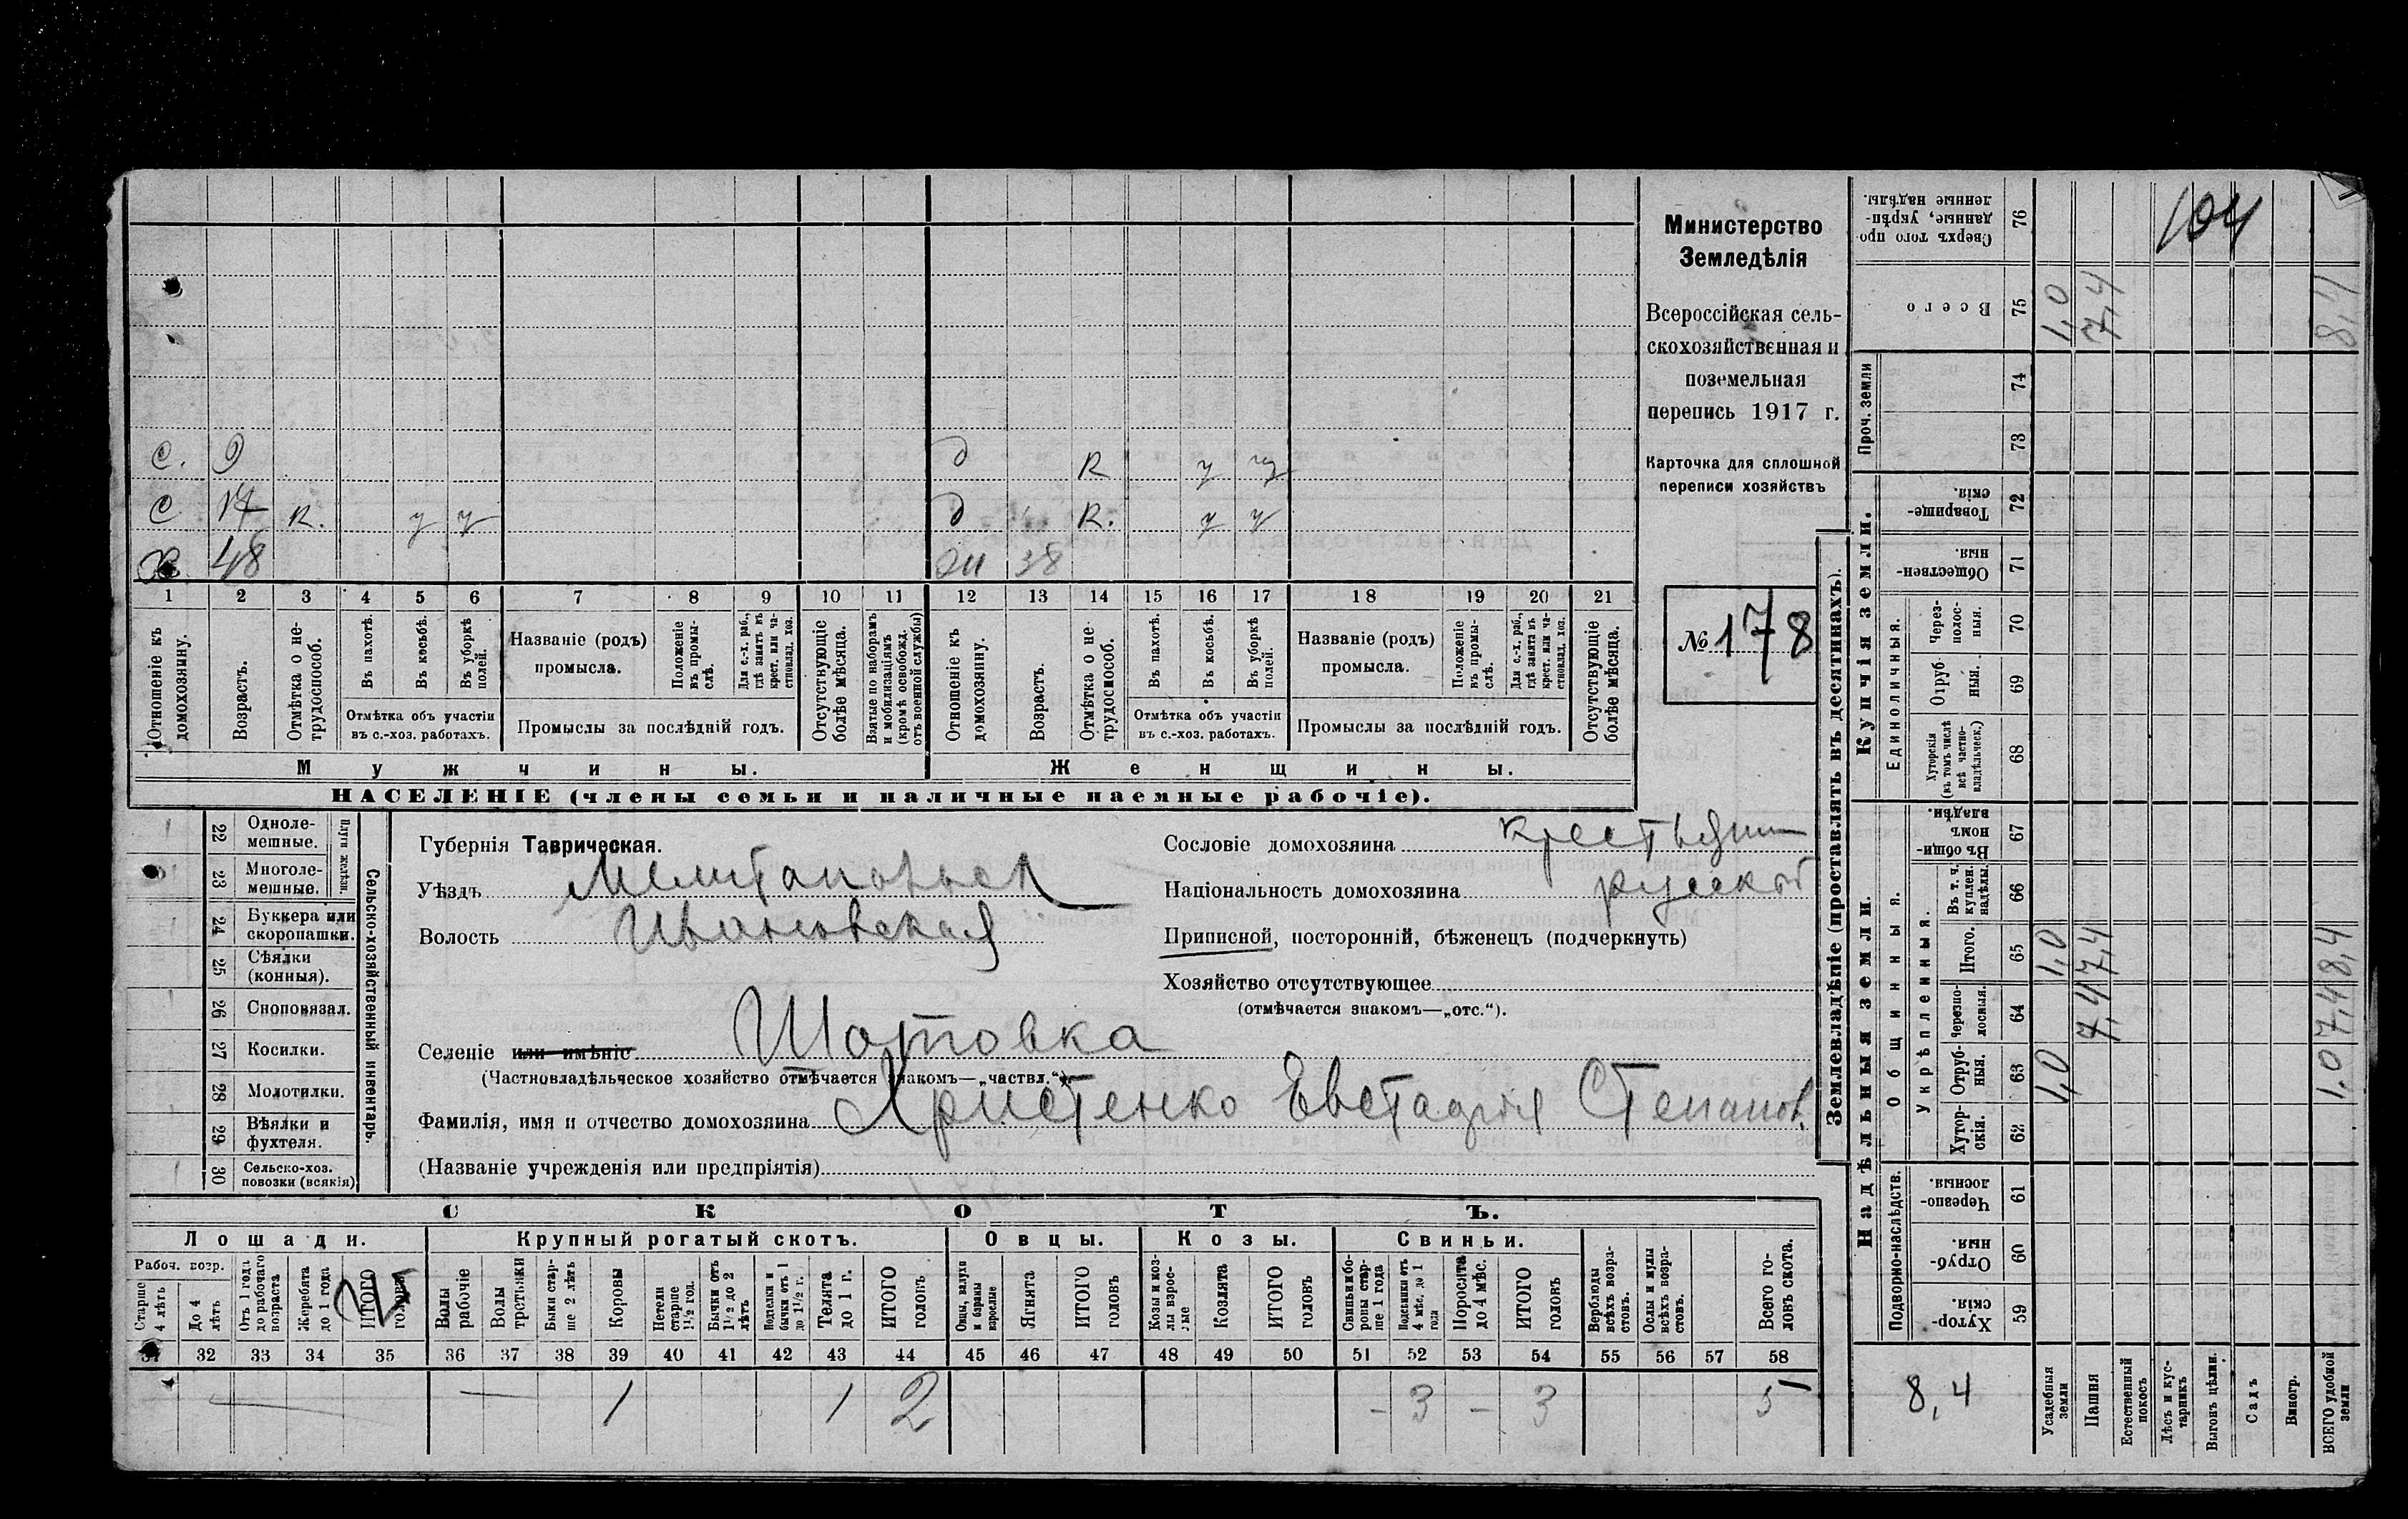 Министерство
Земледѣлія
Всероссійская сель-
скохозяйственная и
поземельная
перепись 1917 г.
Карточка для сплошной
переписи хозяйствъ
№ 178
с. 9 д R у
с 17 R. у у д R. у у
х 48 38
1 2 3 4 5 6 7 8 9 10 11 12 13 14 15 16 17 18 19 20 21
Отношеніе къ домохозяину.
Возрастъ.
Отмѣтка о не-трудоспособ.
Въ пахотѣ.
Въ косьбѣ.
Въ уборкѣ полей.
Отмѣтка объ участіи въ с.-хоз. работахъ.
Названіе (родъ) промысла.
Положеніе въ промы-слѣ.
Для с.-х. раб., гдѣ занятъ въ крест. или ча-стновлад. хоз.
Промыслы за послѣдній годъ.
Отсутствующіе болѣе мѣсяца.
Взятые по наборамъ и мобилизаціямъ (кромѣ освобожд. отъ военной службы)
Отношеніе къ домохозяину.
Возрастъ.
Отмѣтка о не трудоспособ.
Въ пахотѣ.
Въ косьбѣ.
Въ уборкѣ полей.
Отмѣтка объ участіи въ с.-хоз. работахъ.
Названіе (родъ) промысла.
Положеніе въ промы-слѣ.
Для с.-х. раб., гдѣ занята въ крест. или ча-стновлад. хоз.
Промыслы за послѣдній годъ.
Отсутствующіе болѣе мѣсяца.
Мужчины. Женщины.
НАСЕЛЕНІЕ (члены семьи и наличные наемные рабочіе).
Сельско-хозяйственный инвентарь.
22 Одноле-мешные.
23 Многоле-мешные.
24 Буккера или скоропашки.
25 Сѣялки (конныя).
26 Сноповязал.
27 Косилки.
28 Молотилки.
29 Вѣялки и фухтеля.
30 Сельско-хоз. повозки (всякія)
Губернія Таврическая.
Уѣздъ Мелитопольск
Волость Ивановская
Селеніе или имѣніе Шотовка
(Частновладѣльческое хозяйство отмѣчается знакомъ—„частвл.“).
Фамилія, имя и отчество домохозяина Христенко Евстафія Степанов.
(Названіе учрежденія или предпріятія)
Сословіе домохозяина крестьянин
Національность домохозяина русскій
Приписной, посторонній, бѣженецъ (подчеркнуть)
Хозяйство отсутствующее
(отмѣчается знакомъ—„отс.“).
СКОТЪ.
Лошади. Крупный рогатый скотъ. Овцы. Козы. Свиньи.
Рабоч. возр.
Старше 4 лѣтъ
До 4 лѣтъ
Отъ 1 года до рабочаго возраста
Жеребята до 1 года
ИТОГО головъ
Волы рабочіе
Волы третьяки
Быки стар-ше 2 лѣтъ
Коровы
Нетели старше 1½ год.
Бычки отъ 1½ до 2 лѣтъ
Подтелки и бычки отъ 1 до 1½ г.
Телята до 1 г.
ИТОГО головъ
Овцы, валухи и бараны взрослые
Ягнята
ИТОГО головъ
Козы и коз-лы взрос-лые
Козлята
ИТОГО головъ
Свиньи и бо-ровы стар-ше 1 года
Подсвинки отъ 4 мѣс. до 1 года
Поросята до 4 мѣс.
ИТОГО головъ
Верблюды всѣхъ возра-стовъ.
Ослы и мулы всѣхъ возра-стовъ.
Всего го-ловъ скота.
31 32 33 34 35 36 37 38 39 40 41 42 43 44 45 46 47 48 49 50 51 52 53 54 55 56 57 58
— — 1 1 2 - 3 - 3 5
Землевладѣніе (проставлять въ десятинахъ).
Купчія земли.
Надѣльныя земли.
Сверхъ того про-данные, укрѣп-ленные надѣлы. 76
Всего 75 1,0 7,4 8,4
104
Проч. земли 74 73
Товарище-скія. 72
Обществен-ныя. 71
Единоличныя.
Через-полос-ныя. 70
Отруб-ныя. 69
Хуторскія (въ томъ числѣ всѣ частно-владѣльческ.) 68
Общинныя.
Въ общин-номъ владѣн. 67
Укрѣпленныя.
Въ т. ч. куплен. надѣлы. 66
Итого. 65 1,0 7,4 8,4
Черезпо-лосныя. 64 7,4 7,4
Отруб-ныя. 63 1,0 1,0
Хутор-скія. 62
Подворно-наслѣдств.
Черезпо-лосныя. 61
Отруб-ныя. 60
Хутор-скія. 59
8,4
Усадебныя земли
Пашня
Естественный покосъ
Лѣсъ и кус-тарникъ
Выгонъ цѣлин.
Садъ
Виногр.
ВСЕГО удобной земли